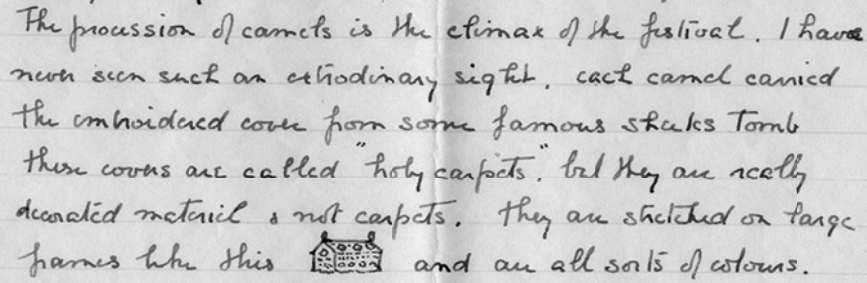 The procession of camels is the climax of the festival. I have
never seen such an extrodinary sight. each camel carried
the embroidered cover from some famous sheks Tomb
these covers are called "holy carpets". but they are really
decorated material & not carpets. They are stretched on large
frames like this and are all sorts of colours.